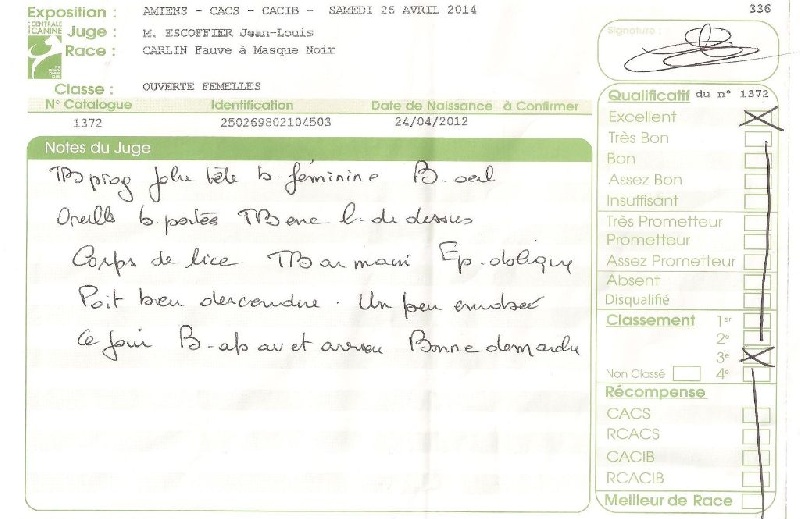 Exposition : AMIENS - CACS - CACIB - SAMEDI 26 AVRIL 2014
336
CENTRALE CANINE
Juge : M. ESCOFFIER Jean-Louis
Race : CARLIN Fauve à Masque Noir
Classe : OUVERTE FEMELLES
N° Catalogue Identification Date de Naissance à Confirmer
1372 250269802104503 24/04/2012
Notes du Juge
TB prog jolie tête b féminine B. oeil
Oreille b portées TB enc l. de dessus
Corps de lice TB Ep. oblique
Poit bien descendue. Un peu
Ce jour B-ap av et arrière Bonne démarche
Signature :
Qualificatif du n° 1372
Excellent
Très Bon
Bon
Assez Bon
Insuffisant
Très Prometteur
Prometteur
Assez Prometteur
Absent
Disqualifié
Classement 1er
2e
3e
Non Classé 4e
Récompense
CACS
RCACS
CACIB
RCACIB
Meilleur de Race